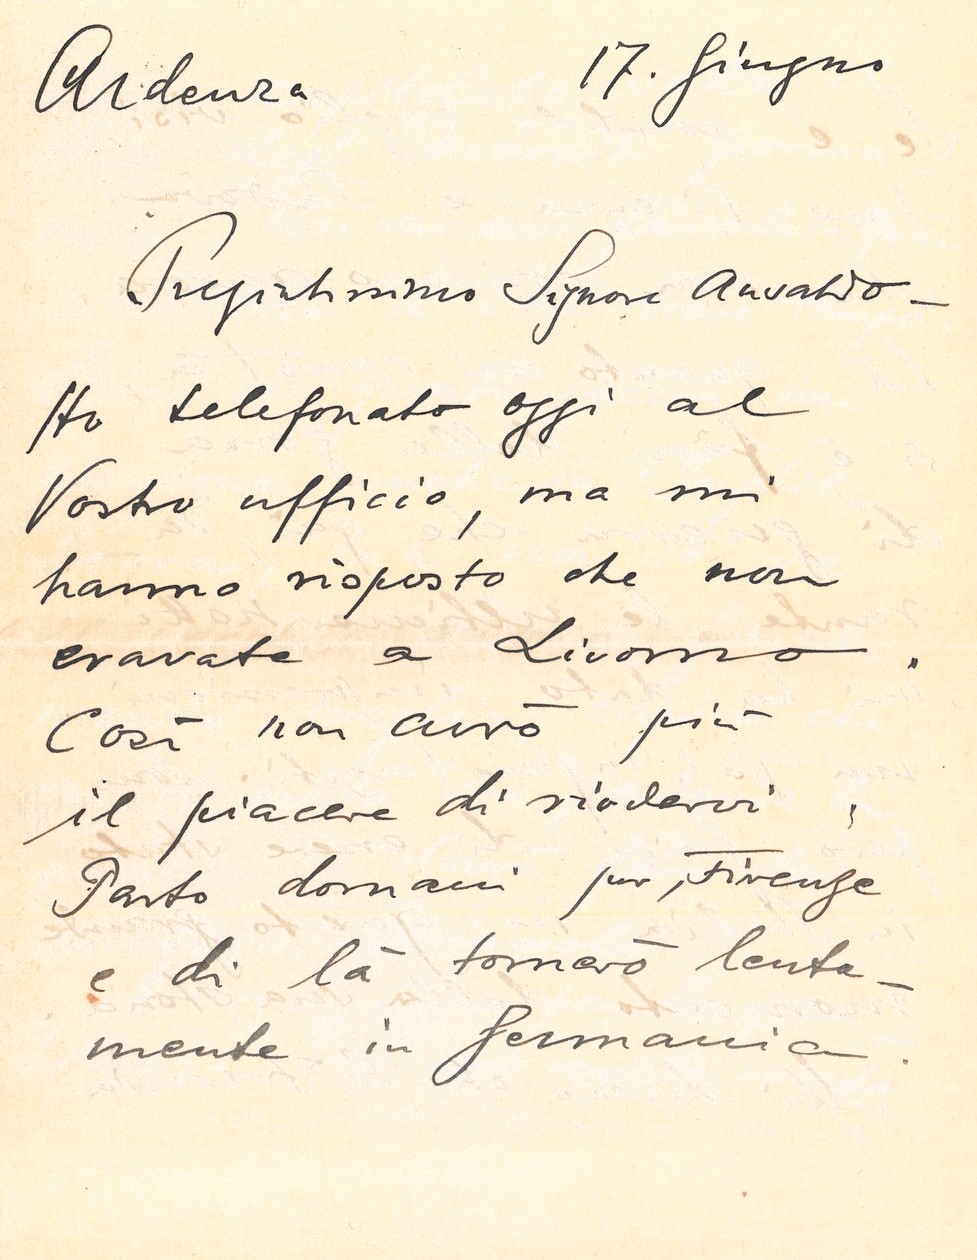 Ardenza 17. Giugno
Pregiatissimo Signore Ansaldo —
Ho telefonato oggi al
Vostro ufficio, ma mi
hanno risposto che non
eravate a Livorno.
Così non avrò più
il piacere di riodervi ;
Parto domani per Firenze
e di là tornerò lenta-
mente in Germania.